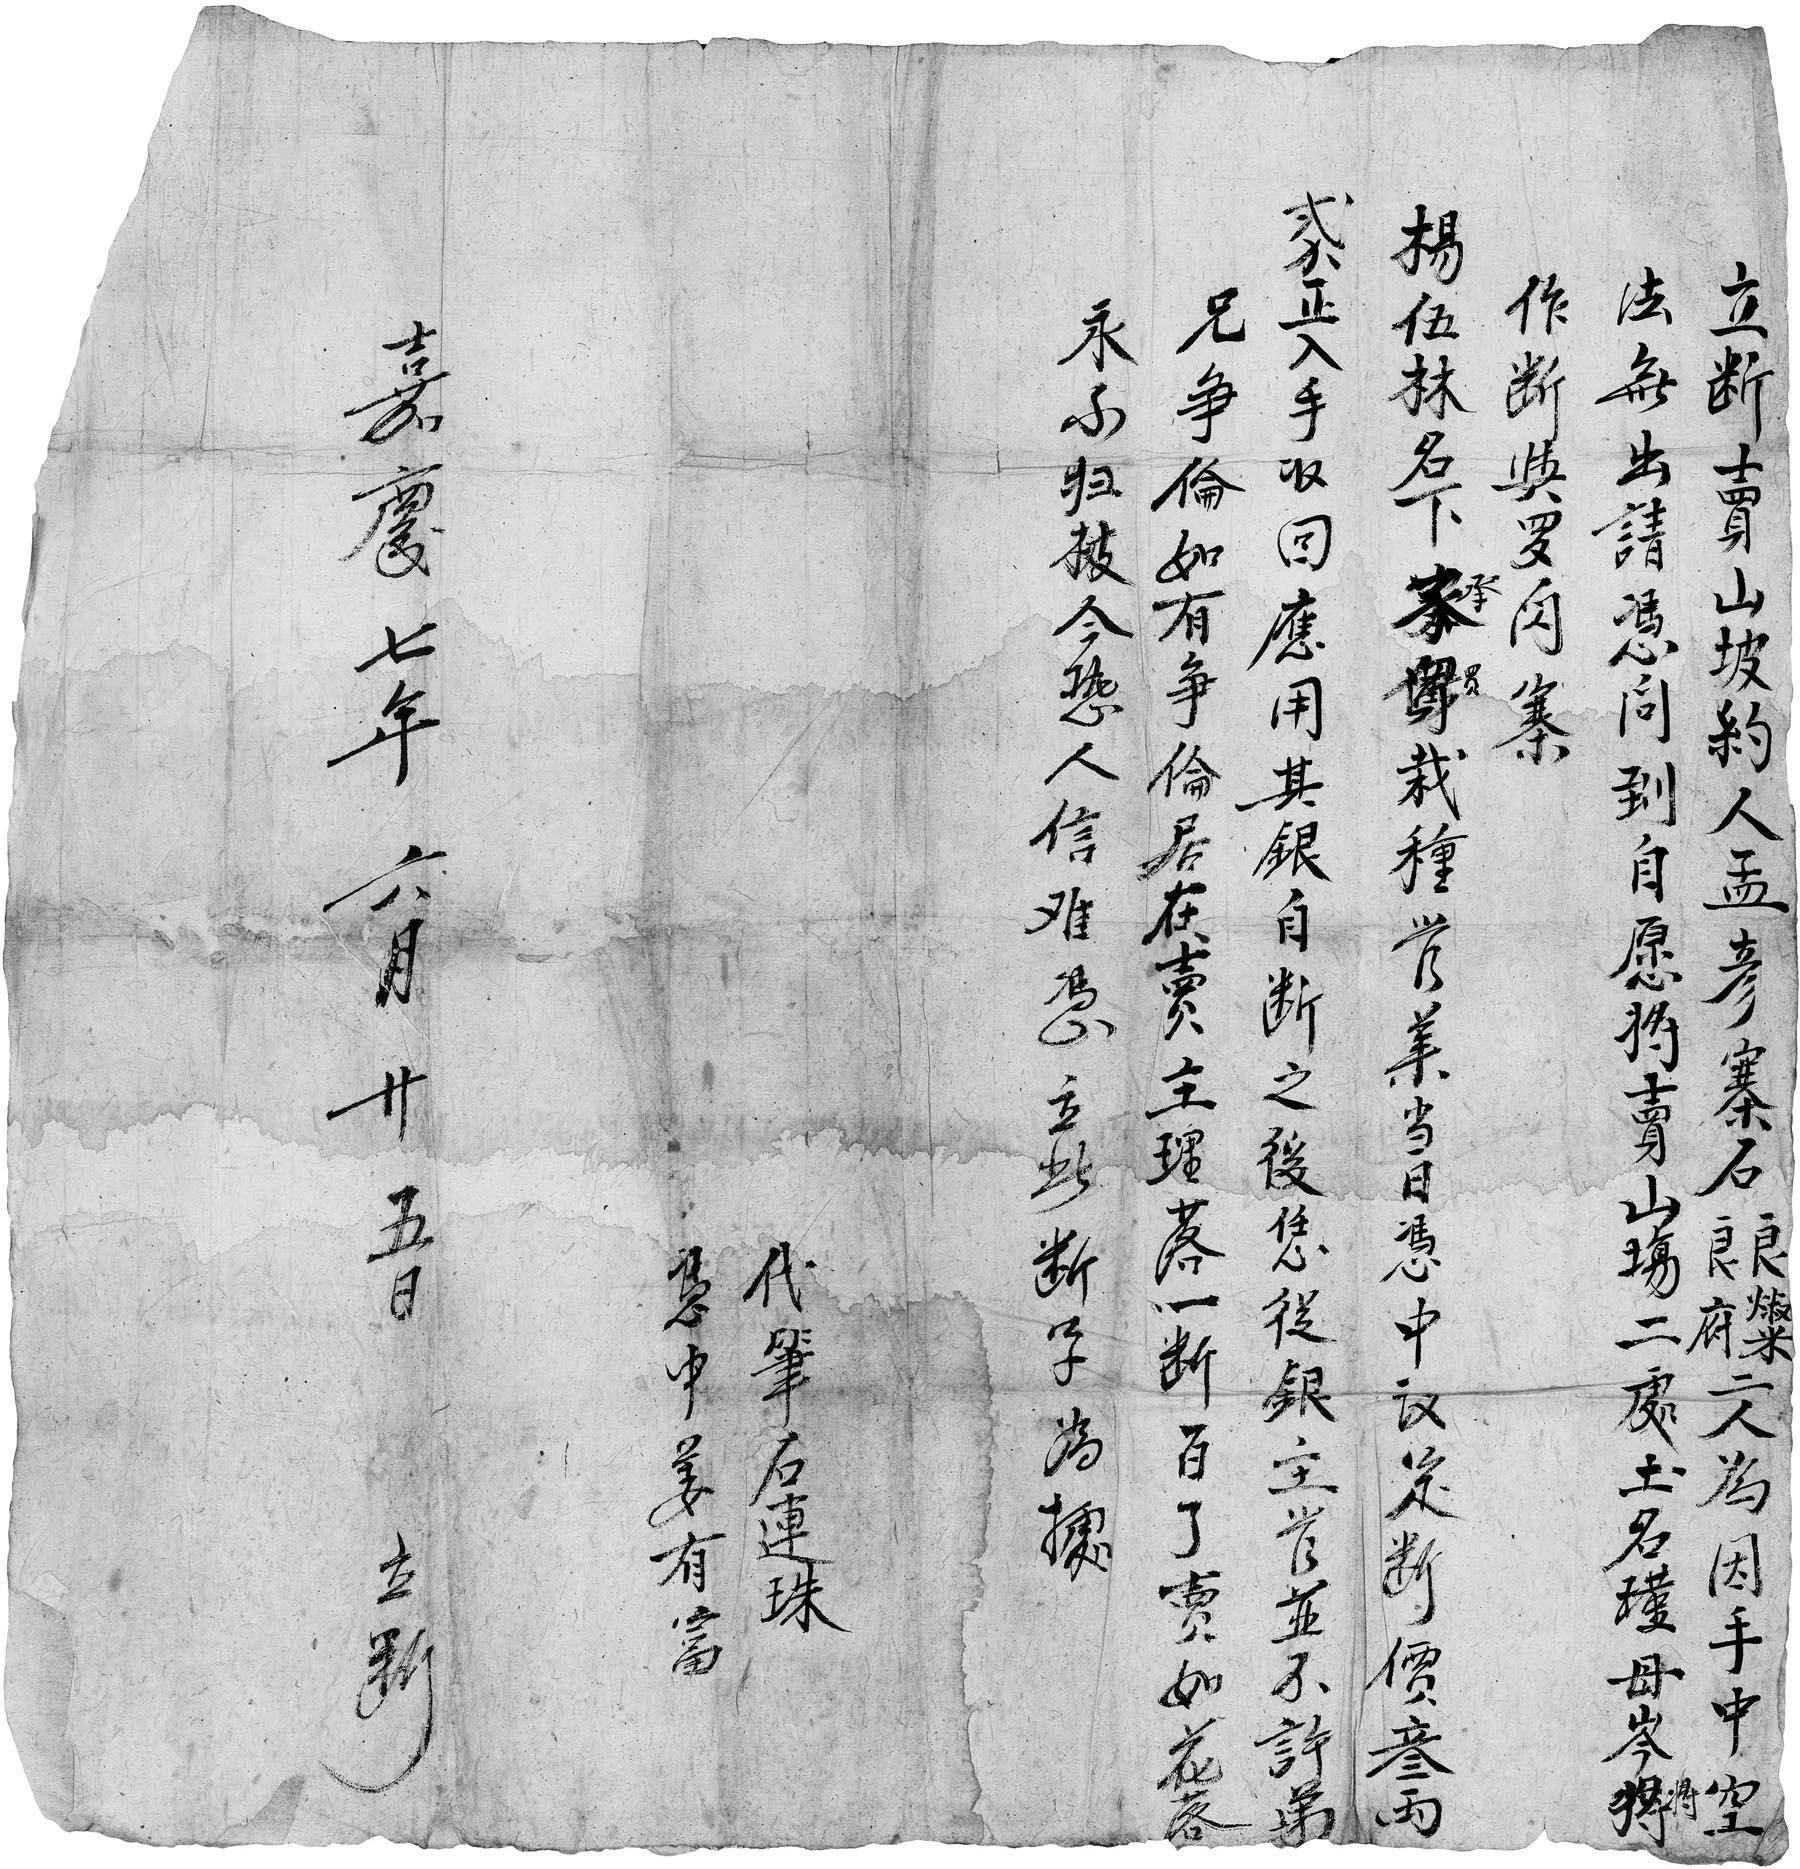 立断賣山坡約人孟彦寨石良燦良府二人為因手中空
法無出請憑问到自愿将賣山塲二處土名瑾母岑将
作断與罗闪寨
楊伍林名下承買栽種管業当日憑中议定断價叁両
贰正入手收回應用其銀自断之後恁從銀主管並不許弟
兄争倫如有争倫居在賣主理落一断百了賣如花落
永不归披今恐人信难憑立此断字為據
代筆石連珠
憑中姜有富
嘉慶七年六月廿五日立断